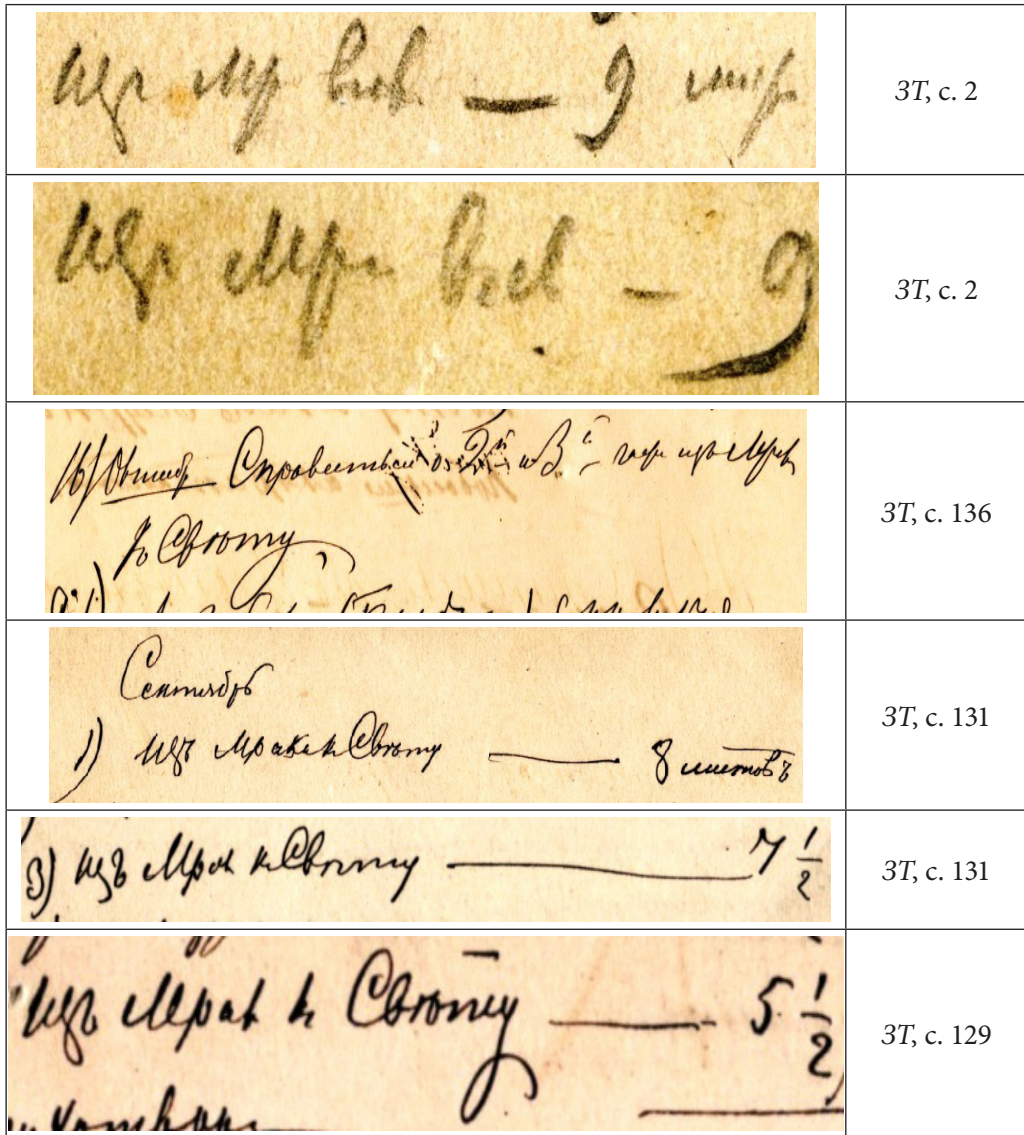 изъ Мр
— 9
ЗТ, с. 2
изъ Мр — 9
ЗТ, с. 2
16/Октябр Справиться о 2й и 3й изъ Мрак
къ Свѣту
ЗТ, с. 136
Сентябрь
1) изъ Мрака к Свѣту — 8 листовъ
ЗТ, с. 131
3) изъ Мрак к Свѣту — 7 1/2
ЗТ, с. 131
изъ Мрак к Свѣту — 5 1/2
ЗТ, с. 129